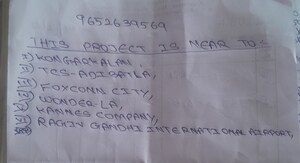 9652639569
THIS PROJECT IS NEAR TO:
I) KONGARKALAN,
II) TCS-ADIBATLA,
III) FOXCONN CITY,
IV) WONDER LA,
V) KANNES COMPANY,
VI) RAGIV GANDHI INTERNATIONAL AIRPORT,